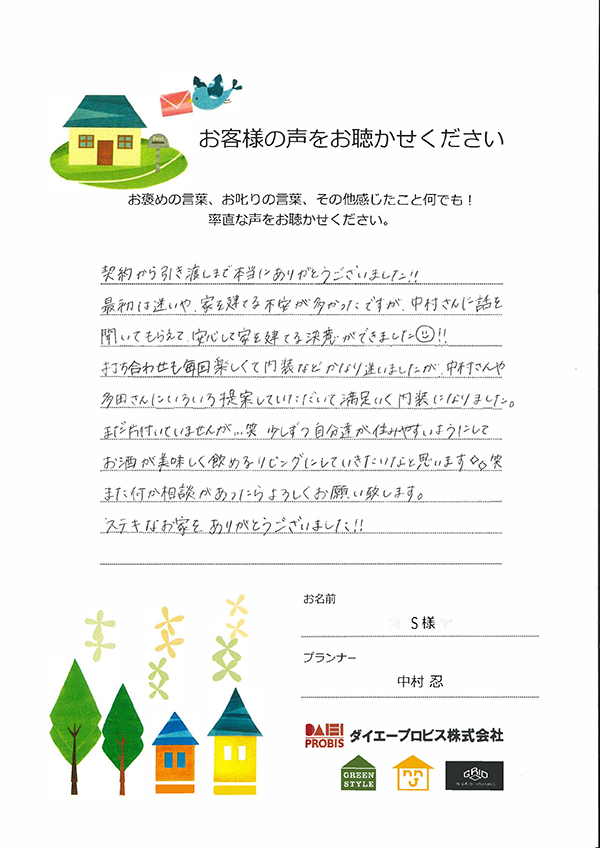 お客様の声をお聴かせください
お褒めの言葉、お叱りの言葉、その他感じたこと何でも！
率直な声をお聴かせください。
契約から引き渡しまで本当にありがとうございました!!
最初は迷いや、家を建てる不安が多かったですが、中村さんに話を
聞いてもらえて、安心して家を建てる決意ができました☺!!
打ち合わせも毎回楽しくて内装などかなり迷いましたが、中村さんや
多田さんにいろいろ提案していただいて満足いく内装になりました。
まだ片付いていませんが…笑 少しずつ自分達が住みやすいようにして
お酒が美味しく飲めるリビングにしていきたいなと思います◇◇笑
また何か相談があったらよろしくお願い致します。
ステキなお家をありがとうございました!!
お名前
S様
プランナー
中村 忍
DAIEI
PROBIS
ダイエープロビス株式会社
GREEN
STYLE
GRID